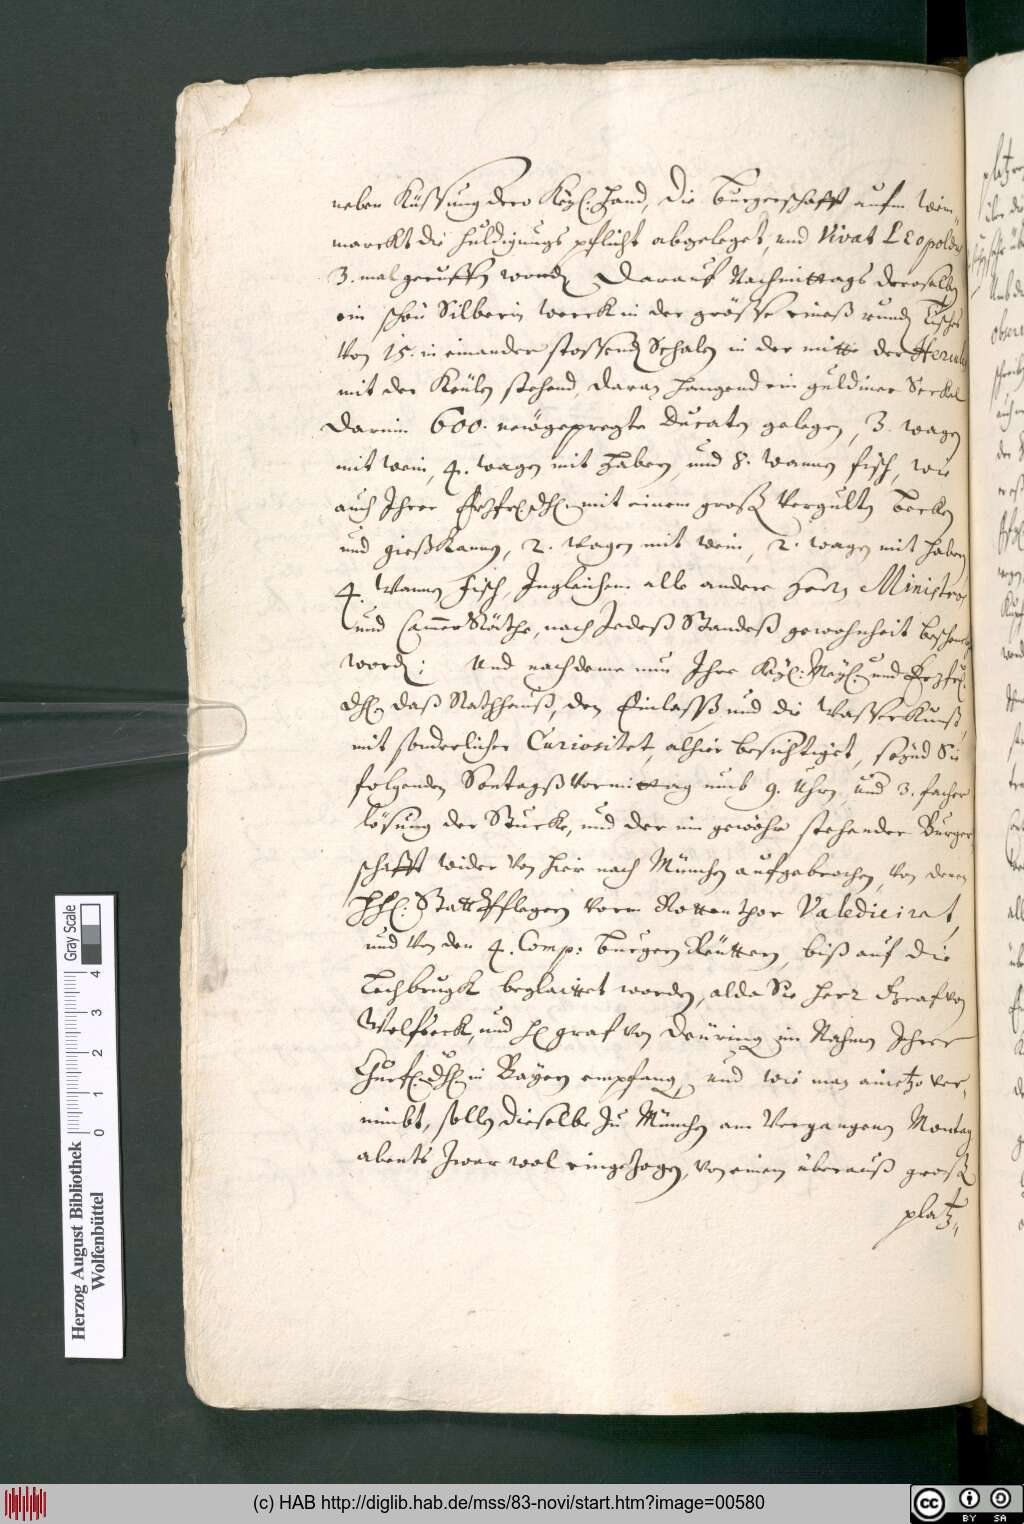 neben Küssung dero Kayl: Hand, die burgerschafft aufm Wein„
marckt die huldigungs pflicht abgeleget, und Vivat LEopoldus
3. mal geruffen worden, Darauf Nachmittags deroselben
ein schön Silberin werck in der grösse eineß runden Tisches
Von 15. in einander stossenden Schalen in der mitte der Hercules
mit der Keülen stehend, daran hangend ein guldiner Seckel
Darinn 600. neügepregte Ducaten gelegen, 3. wagen
mit wein, 4. wagen mit Habern, und 8. wannen fisch, wie
auch Ihrer mit einem groß Vergulten Becken
und gießkannen, 2. wagen mit wein, 2. wagen mit habern
4. Wannen fisch, Ingleichem alle andere Herrn Ministros
und Cammer Räithe, nach Jedeß Standeß gewohnheit beschenckt
worden: Und nachdeme nun Ihre Kayl: Mayl: und Erzfrl.
dhl. daß Rathhauß, den Einlaß und die Wasserkunst
mit sonderlicher Curiositet, alhier besichtiget, seynd Sie
folgenden Sontagß Vormittag umb 9. Uhrn, und 3. facher
lösung der Stucke, und der im gewöhr stehender Burger„
schafft wider Von hier nach München aufgebrochen, Von denen
HHl: Statt Pflegern Vorm Rottenthor Valedicirat,
und Von den 4. Comp: Burgern Reüttern, biß auf die
Lechbrugk beglaittet worden, alda Sie Herr Graf von
Wolfseck, und Hl graf Von Deüring im Nahmen Ihrer
Churfl. dhl. in Bayern empfangen, und wie man anietzo ver„
nimbt, sollen dieselbe zu München am Vergangenen Montag
abents zwar wol eingezogen, Von einem überauß groß
platz„
Herzog August Bibliothek
Wolfenbüttel
Gray Scale
0 1 2 3 4
(c) HAB http://diglib.hab.de/mss/83-novi/start.htm?image=00580
cc BY SA